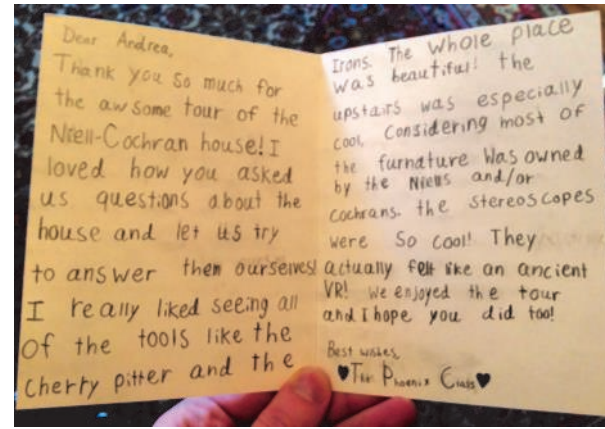 Dear Andrea,
Thank you so much for
the awsome tour of the
Niell-Cochran house! I
loved how you asked
us questions about the
house and let us try
to answer them ourselves!
I really liked seeing all
of the tools like the
Cherry pitter and the
Irons. The whole place
was beautiful! the
upstairs was especially
cool, Considering most of
the furnature was owned
by the Niells and/or
Cochrans. the stereoscopes
were So cool! They
actually felt like an ancient
VR! We enjoyed the tour
and I hope you did too!
Best wishes,
♥The Phoenix Class♥